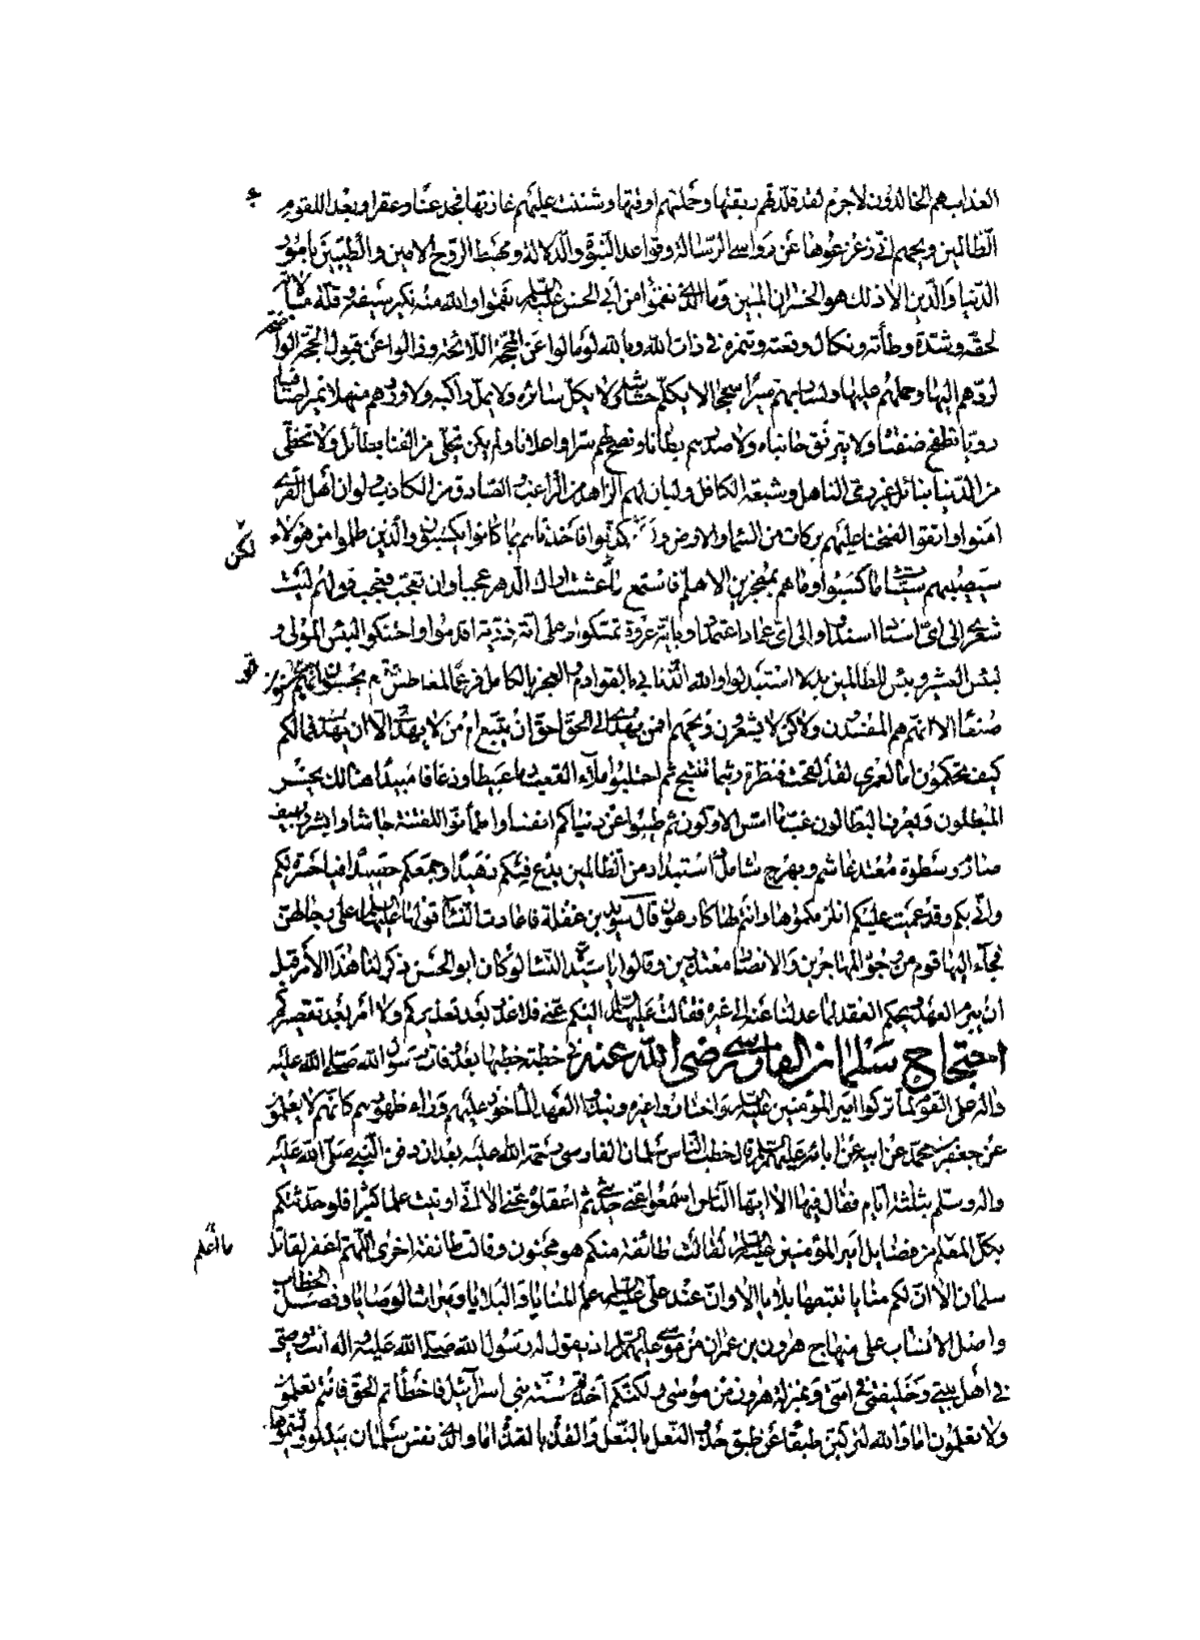 العذاب هم الخالدون لاجرم لقد قلدتهم ربقتها وحملتهم اوقتها وشننت عليهم غاراتها فجدعا وعقرا وبعدا للقوم
الظالمين ويحهم انى زعزعوها عن رواسي الرسالة وقواعد النبوة والدلالة ومهبط الروح الامين والطبين بامور
الدنيا والدين الا ذلك هو الخسران المبين وما الذي نقموا من ابي الحسن عليه السلم نقموا والله منه نكير سيفه وقلة مبالاته
لحتفه وشدة وطأته ونكال وقعته وتنمره في ذات الله وبالله لو مالوا عن المحجة اللائحة وزالوا عن قبول الحجة الواضحة
لردهم اليها وحملهم عليها ولسار بهم سيرا سجحا لا يكلم خشاشه ولا يكل سائره ولا يمل راكبه ولاوردهم منهلا نميرا صافيا
رويا تطفح ضفتاه ولا يترنق جانباه ولاصدرهم بطانا ونصح لهم سرا واعلانا ولم يكن يحلى من الغنا بطائل ولا يحظى
من الدنيا بنائل غير ري الناهل وشبعة الكافل ولبان لهم الزاهد من الراغب والصادق من الكاذب ولو ان اهل القرى
امنوا واتقوا لفتحنا عليهم بركات من السماء والارض ولكن كذبوا فاخذناهم بما كانوا يكسبون والذين ظلموا من هؤلاء
لكن
سيصيبهم سيئات ما كسبوا وما هم بمعجزين الا هلم فاستمع وما عشت اراك الدهر عجبا وان تعجب فعجب قولهم ليت
شعري الى اي اسناد استندوا والى اي عماد اعتمدوا وباية عروة تمسكوا وعلى اية ذرية اقدموا واحتنكوا لبئس المولى و
لبئس العشير وبئس للظالمين بدلا استبدلوا والله الذنابى بالقوادم والعجز بالكاهل فرغما لمعاطس قوم يحسبون انهم يحسنون
صنعا الا انهم هم المفسدون ولكن لا يشعرون ويحهم افمن يهدي الى الحق احق ان يتبع ام من لا يهدي الا ان يهدى فما لكم
كيف تحكمون اما لعمري لقد لقحت فنظرة ريثما تنتج ثم احتلبوا ملاء القعب دما عبيطا وزعافا مبيدا هنالك يخسر
المبطلون ويعرف البطالون غب ما اسس الاولون ثم طيبوا عن دنياكم انفسا واطمأنوا للفتنة جاشا وابشروا بسيف
صارم وسطوة معتد غاشم وبهرج شامل واستبداد من الظالمين يدع فيئكم زهيدا وجمعكم حصيدا فيا حسرة لكم
وانى بكم وقد عميت عليكم انلزمكموها وانتم لها كارهون قال سويد بن غفلة فاعادت النساء قولها عليها السلم على رجالهن
فجاء اليها قوم من وجوه المهاجرين والانصار معتذرين وقالوا يا سيدة النساء لو كان ابو الحسن ذكر لنا هذا الامر قبل
ان يبرم العهد ويحكم العقد لما عدلنا عنه الى غيره فقالت عليها السلم اليكم عني فلا عذر بعد تعذيركم ولا امر بعد تقصيركم
احتجاج سلمان الفارسي رضي الله عنه في خطبة خطبها بعد وفات رسول الله صلى الله عليه
واله على القوم لما تركوا امير المؤمنين عليه السلم واختاروا غيره ونبذوا العهد المأخوذ عليهم وراء ظهورهم كانهم لا يعلمون
عن جعفر بن محمد عن ابيه عن ابائه عليهم السلم قال خطب الناس سلمان الفارسي رحمة الله عليه بعد ان دفن النبي صلى الله عليه
واله وسلم بثلثة ايام فقال فيها الا ايها الناس اسمعوا عني حديثي ثم اعقلوه عني الا اني اوتيت علما كثيرا فلو حدثتكم
بكل المعلم من فضايل امير المؤمنين عليه السلم لقالت طائفة منكم هو مجنون وقالت طائفة اخرى اللهم اغفر لقاتل
ما اعلم
سلمان الا ان لكم منايا تتبعها بلايا الا وان عند علي عليه السلم علم المنايا والبلايا وميراث الوصايا وفصل الخطاب
واصل الانساب على منهاج هرون بن عمران من موسى عليهما السلم اذ يقول له رسول الله صلى الله عليه واله انت وصيي
في اهل بيتي وخليفتي في امتي وبمنزلة هرون من موسى ولكنكم اخذتم سنة بني اسرائيل فاخطأتم الحق فانتم تعلمون
ولا تعلمون اما والله لتركبن طبقا عن طبق حذو النعل بالنعل والقذة بالقذة اما والذي نفس سلمان بيده لو وليتموها